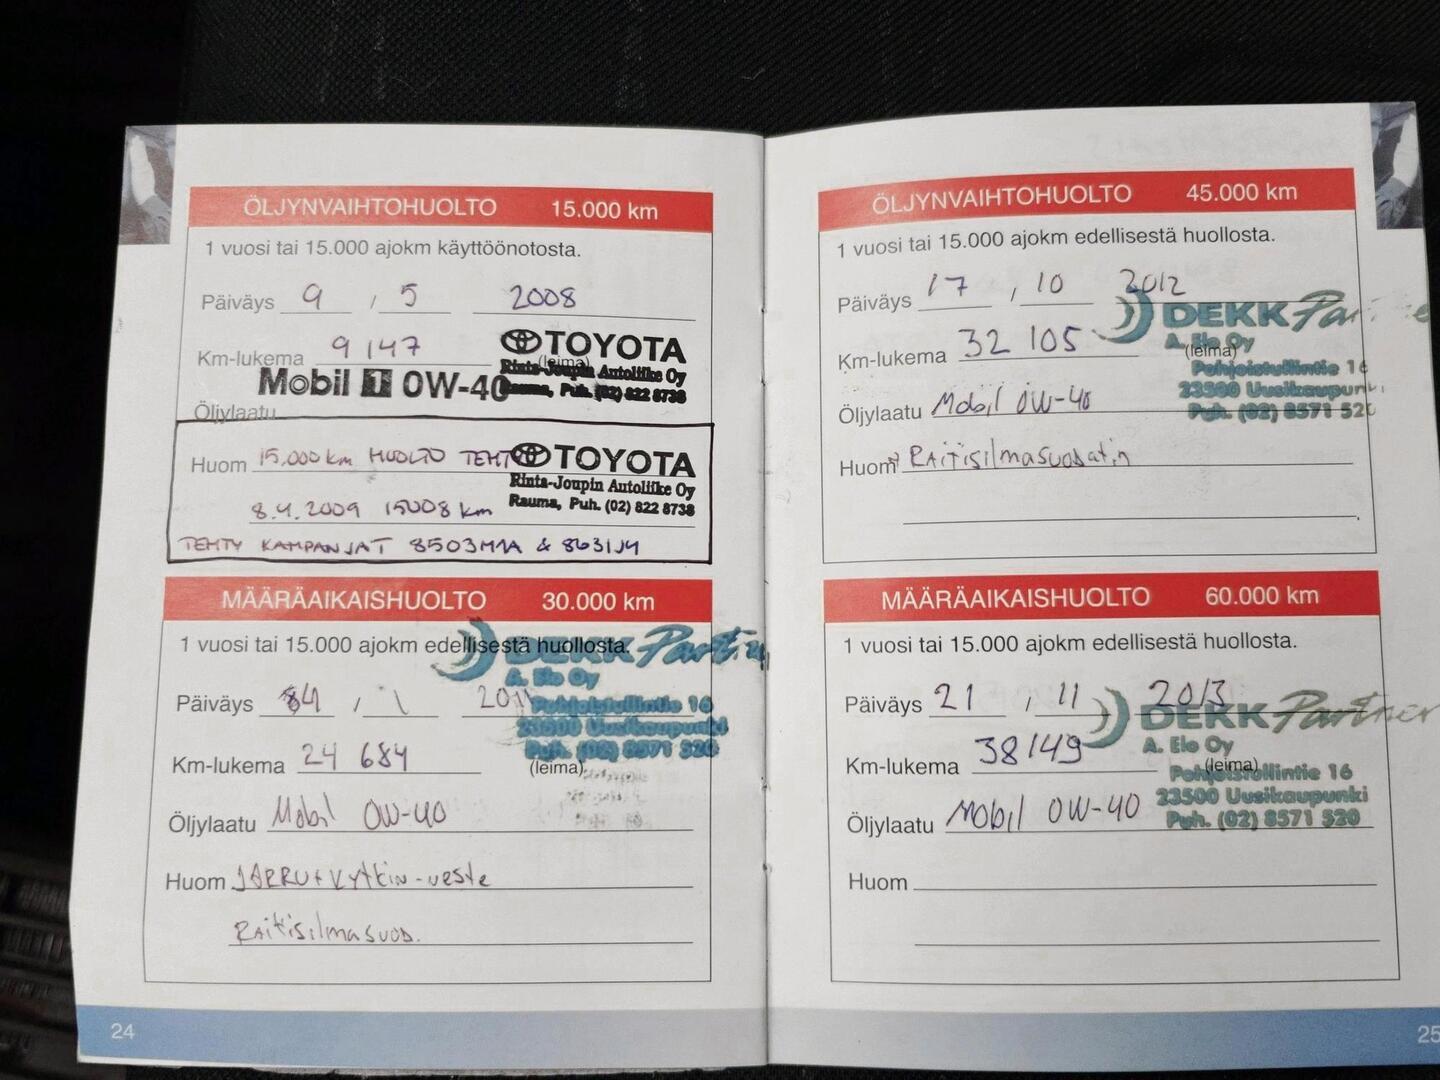 ÖLJYNVAIHTOHUOLTO 15.000 km
1 vuosi tai 15.000 ajokm käyttöönotosta.
Päiväys 9 , 5 2008
Km-lukema 9147 (leima)
TOYOTA
Rinta-Joupin Autoliike Oy
Rauma, Puh. (02) 822 8738
Mobil 1 0W-40
Öljylaatu
Huom 15.000 km HUOLTO TEHTY
8.4.2009 15008 km
TOYOTA
Rinta-Joupin Autoliike Oy
Rauma, Puh. (02) 822 8738
TEHTY KAMPANJAT &
MÄÄRÄAIKAISHUOLTO 30.000 km
1 vuosi tai 15.000 ajokm edellisestä huollosta.
DEKK Partner
A. Elo Oy
Pohjoistullintie 16
23500 Uusikaupunki
Puh. (02) 8571 520
Päiväys , 1 2011
Km-lukema 24 684 (leima)
Öljylaatu Mobil 0W-40
Huom JARRU+KYTKIN-NESTE
RAITISILMASUOD.
24
ÖLJYNVAIHTOHUOLTO 45.000 km
1 vuosi tai 15.000 ajokm edellisestä huollosta.
Päiväys 17 , 10 2012
DEKK Partner
A. Elo Oy
Pohjoistullintie 16
23500 Uusikaupunki
Puh. (02) 8571 520
Km-lukema 32 105 (leima)
Öljylaatu Mobil 0W-40
Huom RAITISILMASUODATIN
MÄÄRÄAIKAISHUOLTO 60.000 km
1 vuosi tai 15.000 ajokm edellisestä huollosta.
Päiväys 21 , 11 2013
DEKK Partner
A. Elo Oy
Pohjoistullintie 16
23500 Uusikaupunki
Puh. (02) 8571 520
Km-lukema 38149 (leima)
Öljylaatu Mobil 0W-40
Huom
25